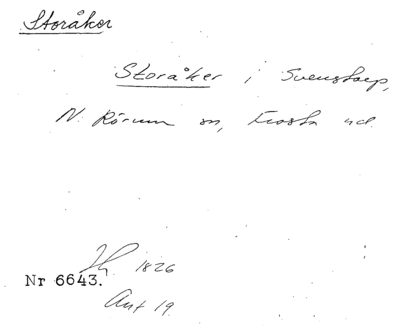 Storåker
Storåker i Svenstorp,
N. Rörum sn, Frosta hd.
1826
Nr 6643.
Ant 19.